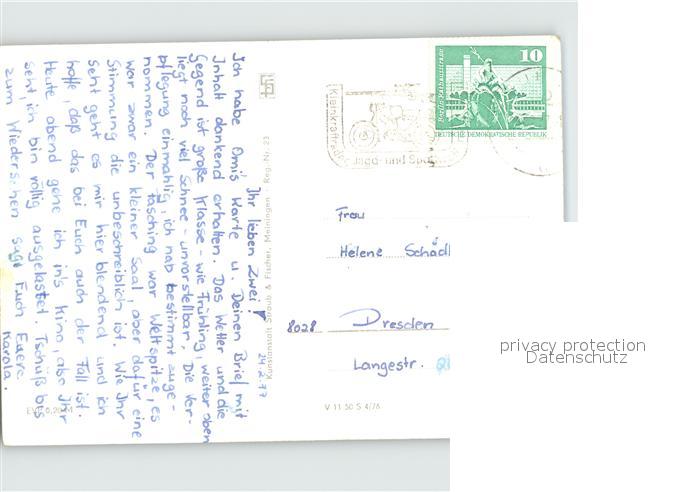 24.2.77
Ihr lieben Zwei!
Ich habe Omi's Karte u. Deinen Brief mit
Inhalt dankend erhalten. Das Wetter und die
Gegend ist große Klasse - wie Frühling, weiter oben
liegt noch viel Schnee - unvorstellbar. Die Ver-
pflegung einmahlig, ich hab bestimmt zuge-
nommen. Der Fasching war Weltspitze, es
war zwar ein kleiner Saal, aber dafür eine
Stimmung die unbeschreiblich ist. Wie Ihr
seht geht es mir hier blendend und ich
hoffe, daß das bei Euch auch der Fall ist.
Heute abend gehe ich in's Kino, also Ihr
seht, ich bin völlig ausgelastet. Tschüß bis
zum Wiedersehen sagt Euch Eure
Karola.
EVP 0,20 M
Kunstanstalt Straub & Fischer, Meiningen Reg.-Nr. 23
Kleinkrafträder
Jagd- und Spo
Berlin, Rathausstraße
10
DEUTSCHE DEMOKRATISCHE REPUBLIK
Frau
Helene Schädl
8028 Dresden
Langestr.
V 11 50 S 4/76
privacy protection
Datenschutz